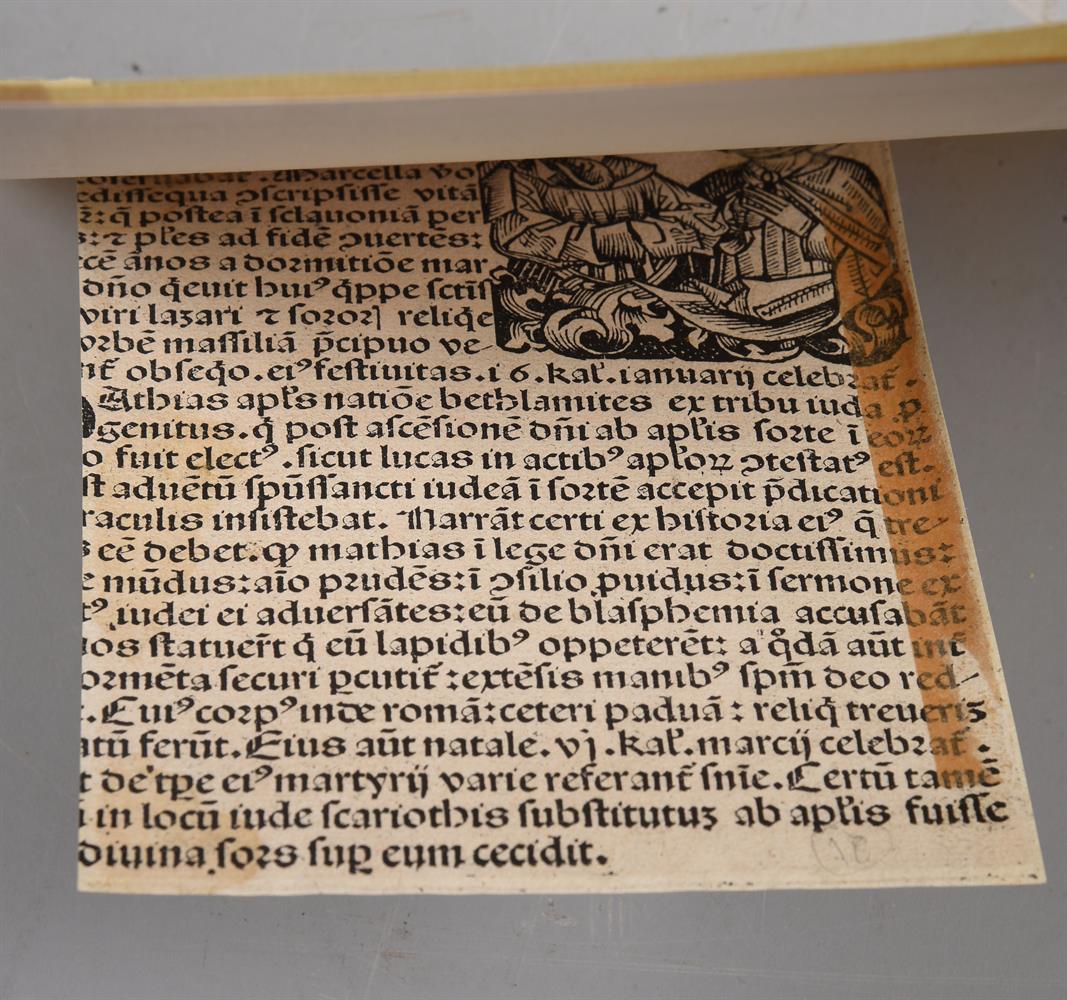 Marcella vo
edissequa ↄscripsisse vitā
ē: q̄ postea ī sclauoniā per
s: ⁊ ples ad fidē ↄuertēs:
cē ānos a dormitiōe mar
dn̄o q̄euit huiꝰ q̄ppe sctīſ
viri lazari ⁊ soroꝝ reliq̄e
orbē massiliā p̄cipuo ve
nt̄ obseq̄o. eiꝰ festiuitas. i 6. kal̄. ianuarij celebrat̄.
Athias apl̄s natiōe bethlamites ex tribu iuda p
genitus. q̄ post ascēsionē dn̄i ab apl̄is sorte ī eoꝝ
o fuit electꝰ. sicut lucas in actibꝰ apl̄oꝝ ↄtestatꝰ est.
st aduētū spūssancti iudeā ī sortē accepit p̄dicationi
raculis insistebat. Narrāt certi ex historia eiꝰ q̄ tre-
s eē debet. ꝙ mathias ī lege dn̄i erat doctissimus:
e mūdus: aīo prudēs: ī ↄsilio ꝓuidus: ī sermone ex
tꝰ iudei ei aduersātes: eū de blasphemia accusabāt
uos statuer̄t q̄ eū lapidibꝰ oppeterēt: a q̊dā aūt int̄
ormēta securi ꝑcutit̄: extēsis manibꝰ spm̄ deo red-
. Cuiꝰ corpꝰ inde romā: ceteri paduā: reliq̄ treueriꝫ
atū ferūt. Eius aūt natale. vj. kal̄. marcij celebrat̄.
t de tꝑe eiꝰ martyrij varie referant̄ snīe. Certū tamē
i in locū iude scariothis substitutuꝫ ab apl̄is fuisse
diuina sors suꝑ eum cecidit.